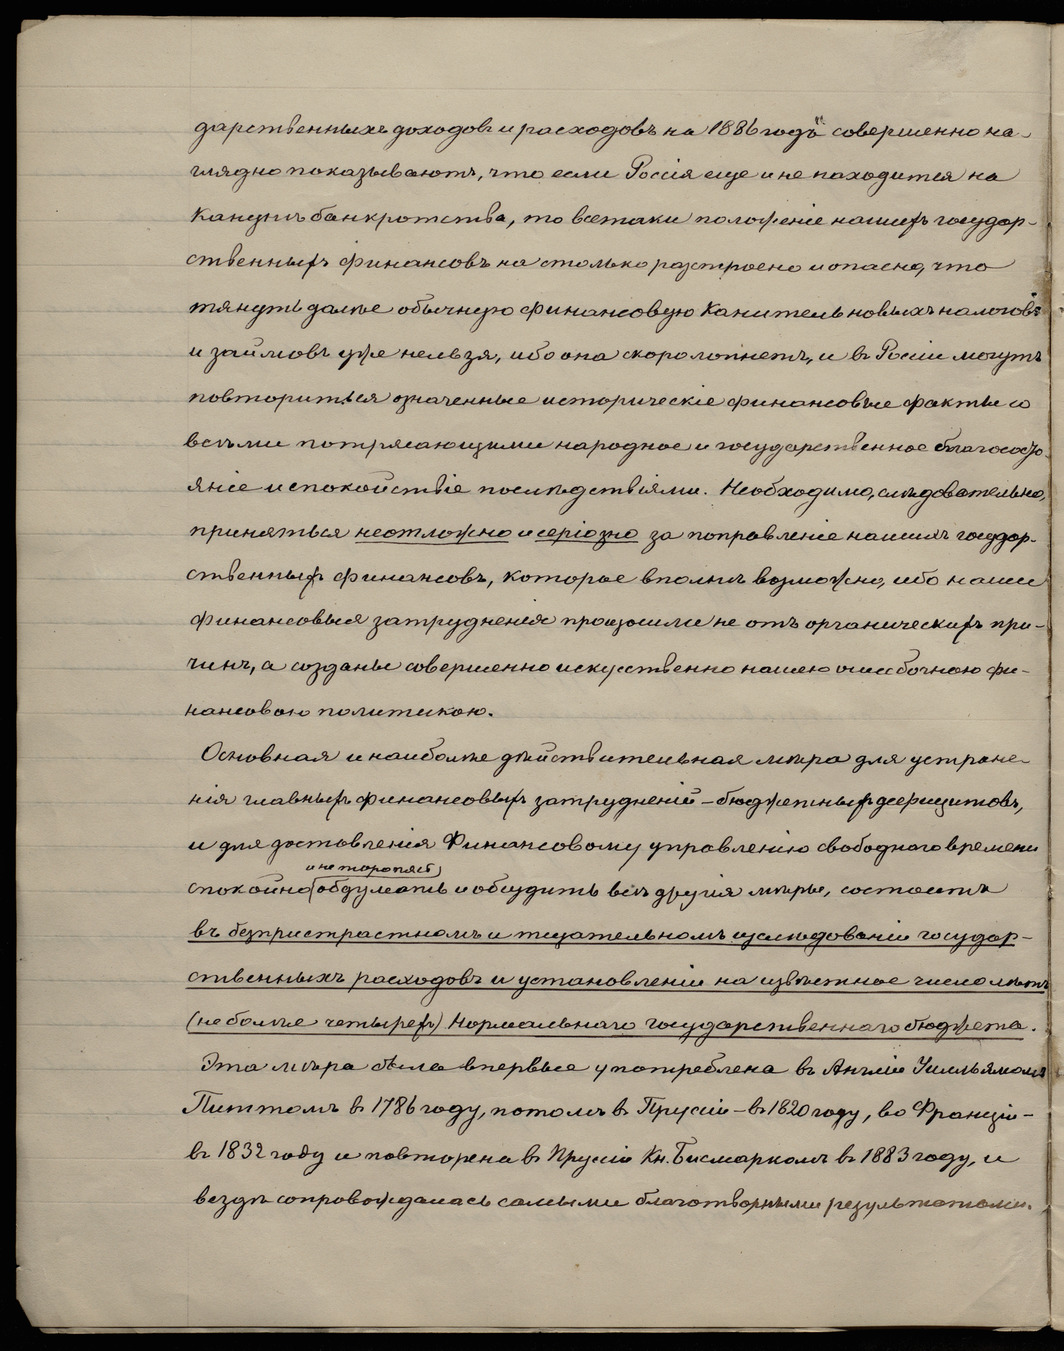 дарственныхъ доходовъ и расходовъ на 1886 годъ" совершенно на-
глядно показываютъ, что если Россія еще и не находится на
канунѣ банкротства, то всетаки положеніе нашихъ государ-
ственныхъ финансовъ на столько разстроено и опасно, что
тянуть далѣе обычную финансовую канитель новыхъ налоговъ
и займовъ уже нельзя, ибо она скоро лопнетъ, и въ Россіи могутъ
повториться означенные историческіе финансовые факты со
всѣми потрясающими народное и государственное благососто-
яніе и спокойствіе послѣдствіями. Необходимо, слѣдовательно,
приняться неотложно и серіозно за поправленіе нашихъ государ-
ственныхъ финансовъ, которое вполнѣ возможно, ибо наши
финансовыя затрудненія произошли не отъ органическихъ при-
чинъ, а созданы совершенно искусственно нашею ошибочною фи-
нансовою политикою.
Основная и наиболѣе дѣйствительная мѣра для устране-
нія главныхъ финансовыхъ затрудненій - бюджетныхъ дефицитовъ,
и для доставленія Финансовому управленію свободнаго времени
и не торопясь
спокойно обдумать и обсудить всѣ другія мѣры, состоитъ
въ безпристрастномъ и тщательномъ изслѣдованіи государ-
ственныхъ расходовъ и установленіи на извѣстное число лѣтъ
(не болѣе четырехъ) нормальнаго государственнаго бюджета.
Эта мѣра была впервые употреблена въ Англіи Уильямомъ
Питтомъ въ 1786 году, потомъ въ Прусіи - въ 1820 году, во Франціи -
въ 1832 году и повторена въ Прусіи Кн. Бисмаркомъ въ 1883 году, и
вездѣ сопровождалась самыми благотворными результатами.